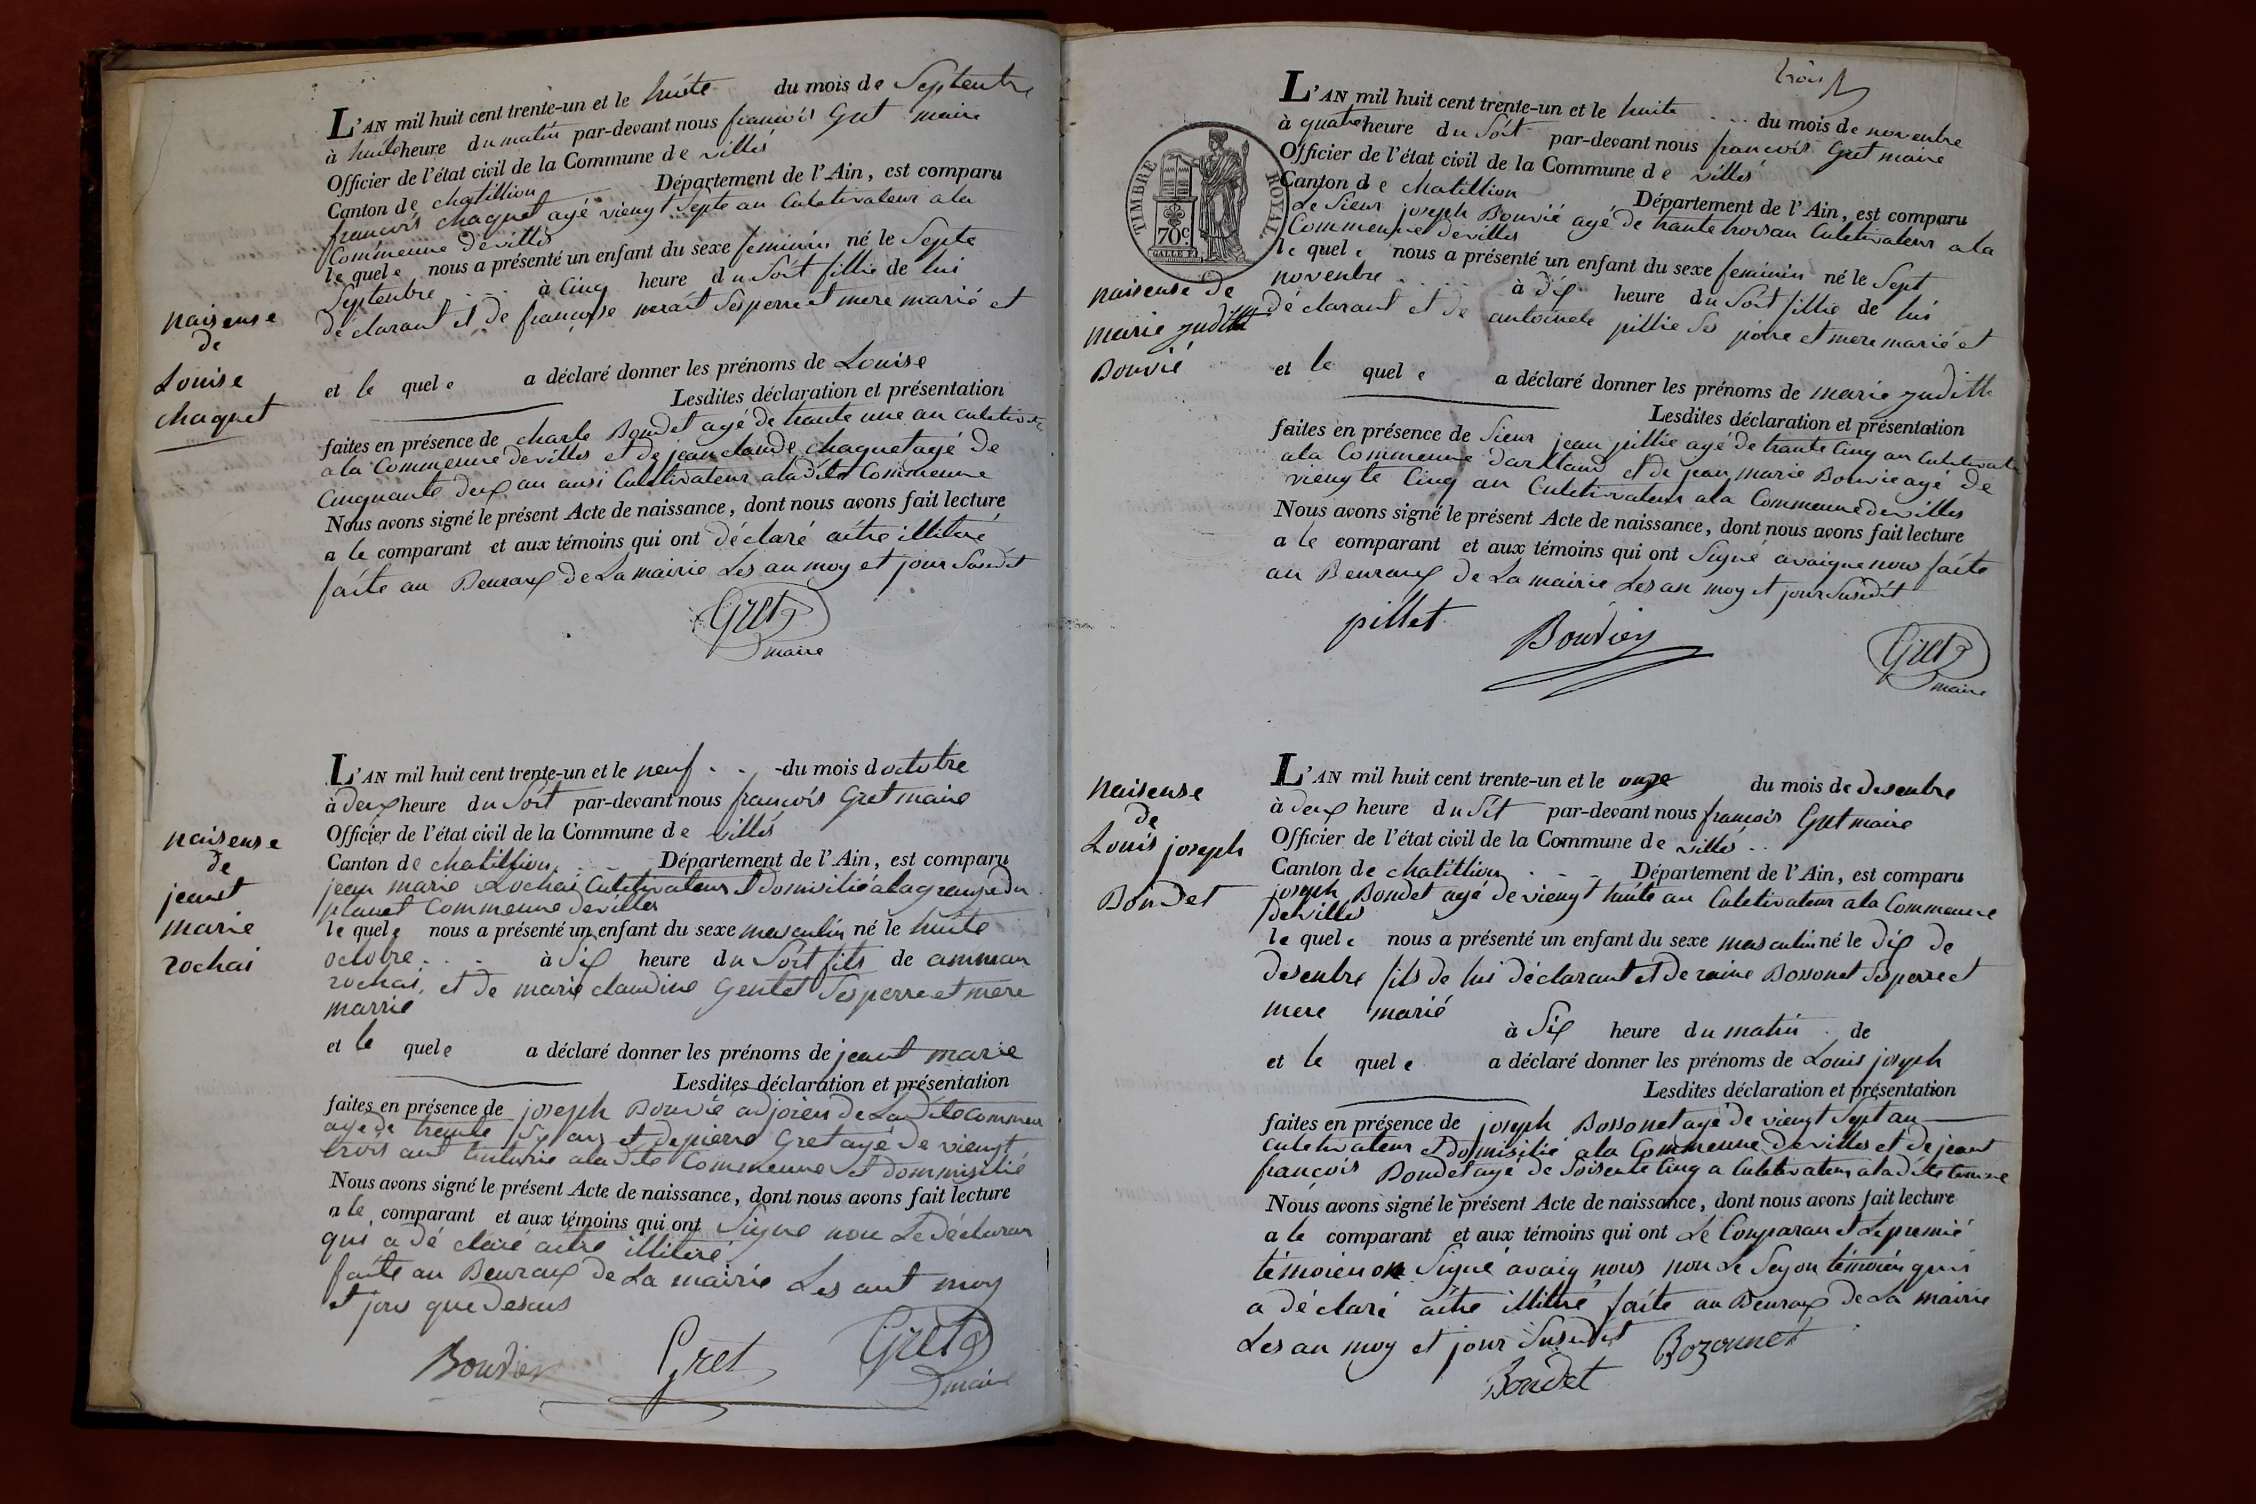 L'AN mil huit cent trente-un et le huite du mois de Septenbre
à huite heure du matin par-devant nous francois Gret maire
Officier de l'état civil de la Commune de villés
Canton de chatillion Département de l'Ain, est comparu
francois chaquet agé viengt septe an Culetivateur a la
Commeune de villes
le quele nous a présenté un enfant du sexe feminin né le Septe
Septenbre à Cinq heure du Soit fillie de lui
déclarant et de francoise merat Ses perre et mere marié et
naisense
de
Louise
chaquet
et le quele a déclaré donner les prénoms de Louise
Lesdites déclaration et présentation
faites en présence de charle Bondet agé de trante une an
a la Commeune de villes et de jean claude chaquet agé de
Cinquante deux an ausi Culetivateur a la dite Commeune
Nous avons signé le présent Acte de naissance, dont nous avons fait lecture
a le comparant et aux témoins qui ont déclaré aitre illitere
faite au Beuraux de La mairie Les an moy et jour Susdit
Gret
maire
L'AN mil huit cent trente-un et le neuf du mois d octobre
à deux heure du Soit par-devant nous francois Gret maire
Officier de l'état civil de la Commune de villés
Canton de chatillion Département de l'Ain, est comparu
jean marie Rochai Culetivateur et domisilié a la grange du
planet Commeune de villes
le quele nous a présenté un enfant du sexe masculin né le huite
octobre à Six heure du Soit fils de amman
rochai, et de marie claudine Gentet Ses perre et mere
marrié
naisense
de
jeant
marie
rochai
et le quele a déclaré donner les prénoms de jeant marie
Lesdites déclaration et présentation
faites en présence de joseph Bouvié adjoien de La dite commeu
agé de trente Six ans et de pierre Gret agé de viengt
trois ant a la dite Commeune et dommisilié
Nous avons signé le présent Acte de naissance, dont nous avons fait lecture
a le comparant et aux témoins qui ont Signe non Le déclaran
qui a dé claré aitre illiteré
faite au Beuraux de La mairie Les ant moy
et jour que desus
Bouvier Gret Gret
maire
trois
L'AN mil huit cent trente-un et le huite du mois de novenbre
à quatre heure du Soit par-devant nous francois Gret maire
Officier de l'état civil de la Commune de villés
Canton de chatillion Département de l'Ain, est comparu
Le Sieur joseph Bouvié agé de trante trois an Culetivateur a la
Commeune de villes
le quele nous a présenté un enfant du sexe feminin né le Sept
novenbre à dix heure du Soit fillie de lui
déclarant et de antoinete pillie Ses perre et mere marié et
TIMBRE ROYAL
70c
naisense de
marie judith
Bouvié
et le quele a déclaré donner les prénoms de marie judith
Lesdites déclaration et présentation
faites en présence de Sieur jean pillie agé de trante Cinq an
a la Commeune et de jean marie Bouvie agé de
viengte Cinq an Culetivateur a la Commeune de villes
Nous avons signé le présent Acte de naissance, dont nous avons fait lecture
a le comparant et aux témoins qui ont Signé avaique nous faite
au Beuraux de La mairie Les an moy et jour Susedit
pillet Bouvier Gret
maire
L'AN mil huit cent trente-un et le onze du mois de desenbre
à deux heure du Sit par-devant nous francois Gret maire
Officier de l'état civil de la Commune de villés
Canton de chatillion Département de l'Ain, est comparu
joseph Bondet agé de viengt huite an Culetivateur a la Commeune
de villes
le quele nous a présenté un enfant du sexe masculin né le dix de
desenbre fils de lui déclarant et de raine Bossonet Ses perre et
mere marié
à Six heure du matin de
naisense
de
Louis joseph
Bondet
et le quele a déclaré donner les prénoms de Louis joseph
Lesdites déclaration et présentation
faites en présence de joseph Bossonet agé de viengt Sept an
Culetivateur et domisilié a la Commeune de villes et de jeant
francois Bondet agé de Soisente Cinq a Culetivateur a la dite
Nous avons signé le présent Acte de naissance, dont nous avons fait lecture
a le comparant et aux témoins qui ont Le Conparan et Le premié
témoien on Signé avaiq nous non Le Segon témoien qui
a déclaré aitre illiteré faite au Beuraux de La mairie
Les an moy et jour Susedit Bozonnet
Bondet